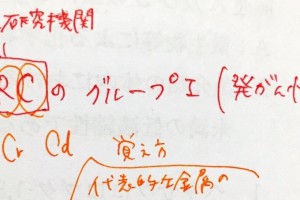 研究機関
RCの グループI (発がん性
Cr Cd 覚え方
代表的な金属の